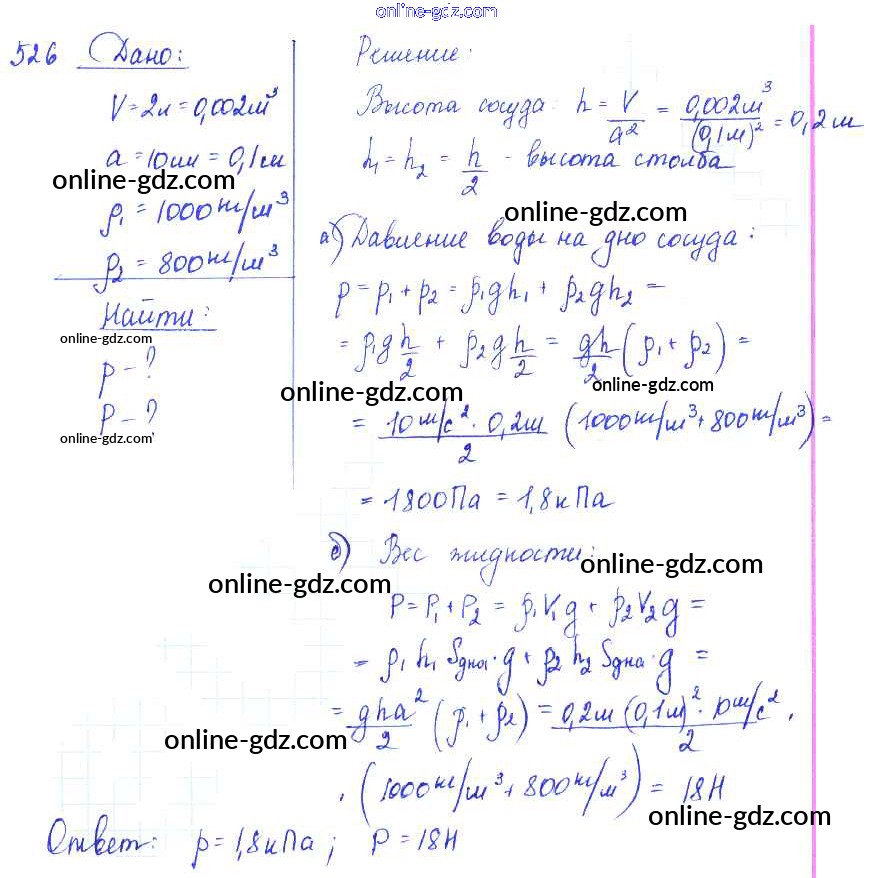 online-gdz.com
526 Дано:
V = 2л = 0,002м³
a = 10см = 0,1м
online-gdz.com
ρ₁ = 1000кг/м³
ρ₂ = 800кг/м³
Найти:
online-gdz.com
p - ?
P - ?
online-gdz.com
Решение:
Высота сосуда: h = V/a² = 0,002м³/(0,1м)² = 0,2м
h₁ = h₂ = h/2 - высота столба
online-gdz.com
а) Давление воды на дно сосуда:
p = p₁ + p₂ = ρ₁gh₁ + ρ₂gh₂ =
= ρ₁g h/2 + ρ₂g h/2 = gh/2 (ρ₁ + ρ₂) =
online-gdz.com online-gdz.com
= 10м/с² · 0,2м/2 (1000кг/м³ + 800кг/м³) =
= 1800Па = 1,8кПа
б) Вес жидкости:
online-gdz.com online-gdz.com
P = P₁ + P₂ = ρ₁V₁g + ρ₂V₂g =
= ρ₁h₁Sдна·g + ρ₂h₂Sдна·g =
= gha²/2 (ρ₁ + ρ₂) = 0,2м (0,1м)² · 10м/с²/2 ·
online-gdz.com
· (1000кг/м³ + 800кг/м³) = 18Н
online-gdz.com
Ответ: p = 1,8кПа; P = 18Н